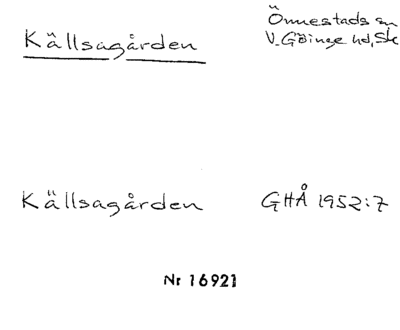 Källsagården
Önnestads sn
V. Göinge hd, Sk
Källsagården
GHÅ 1952:7
Nr 16921